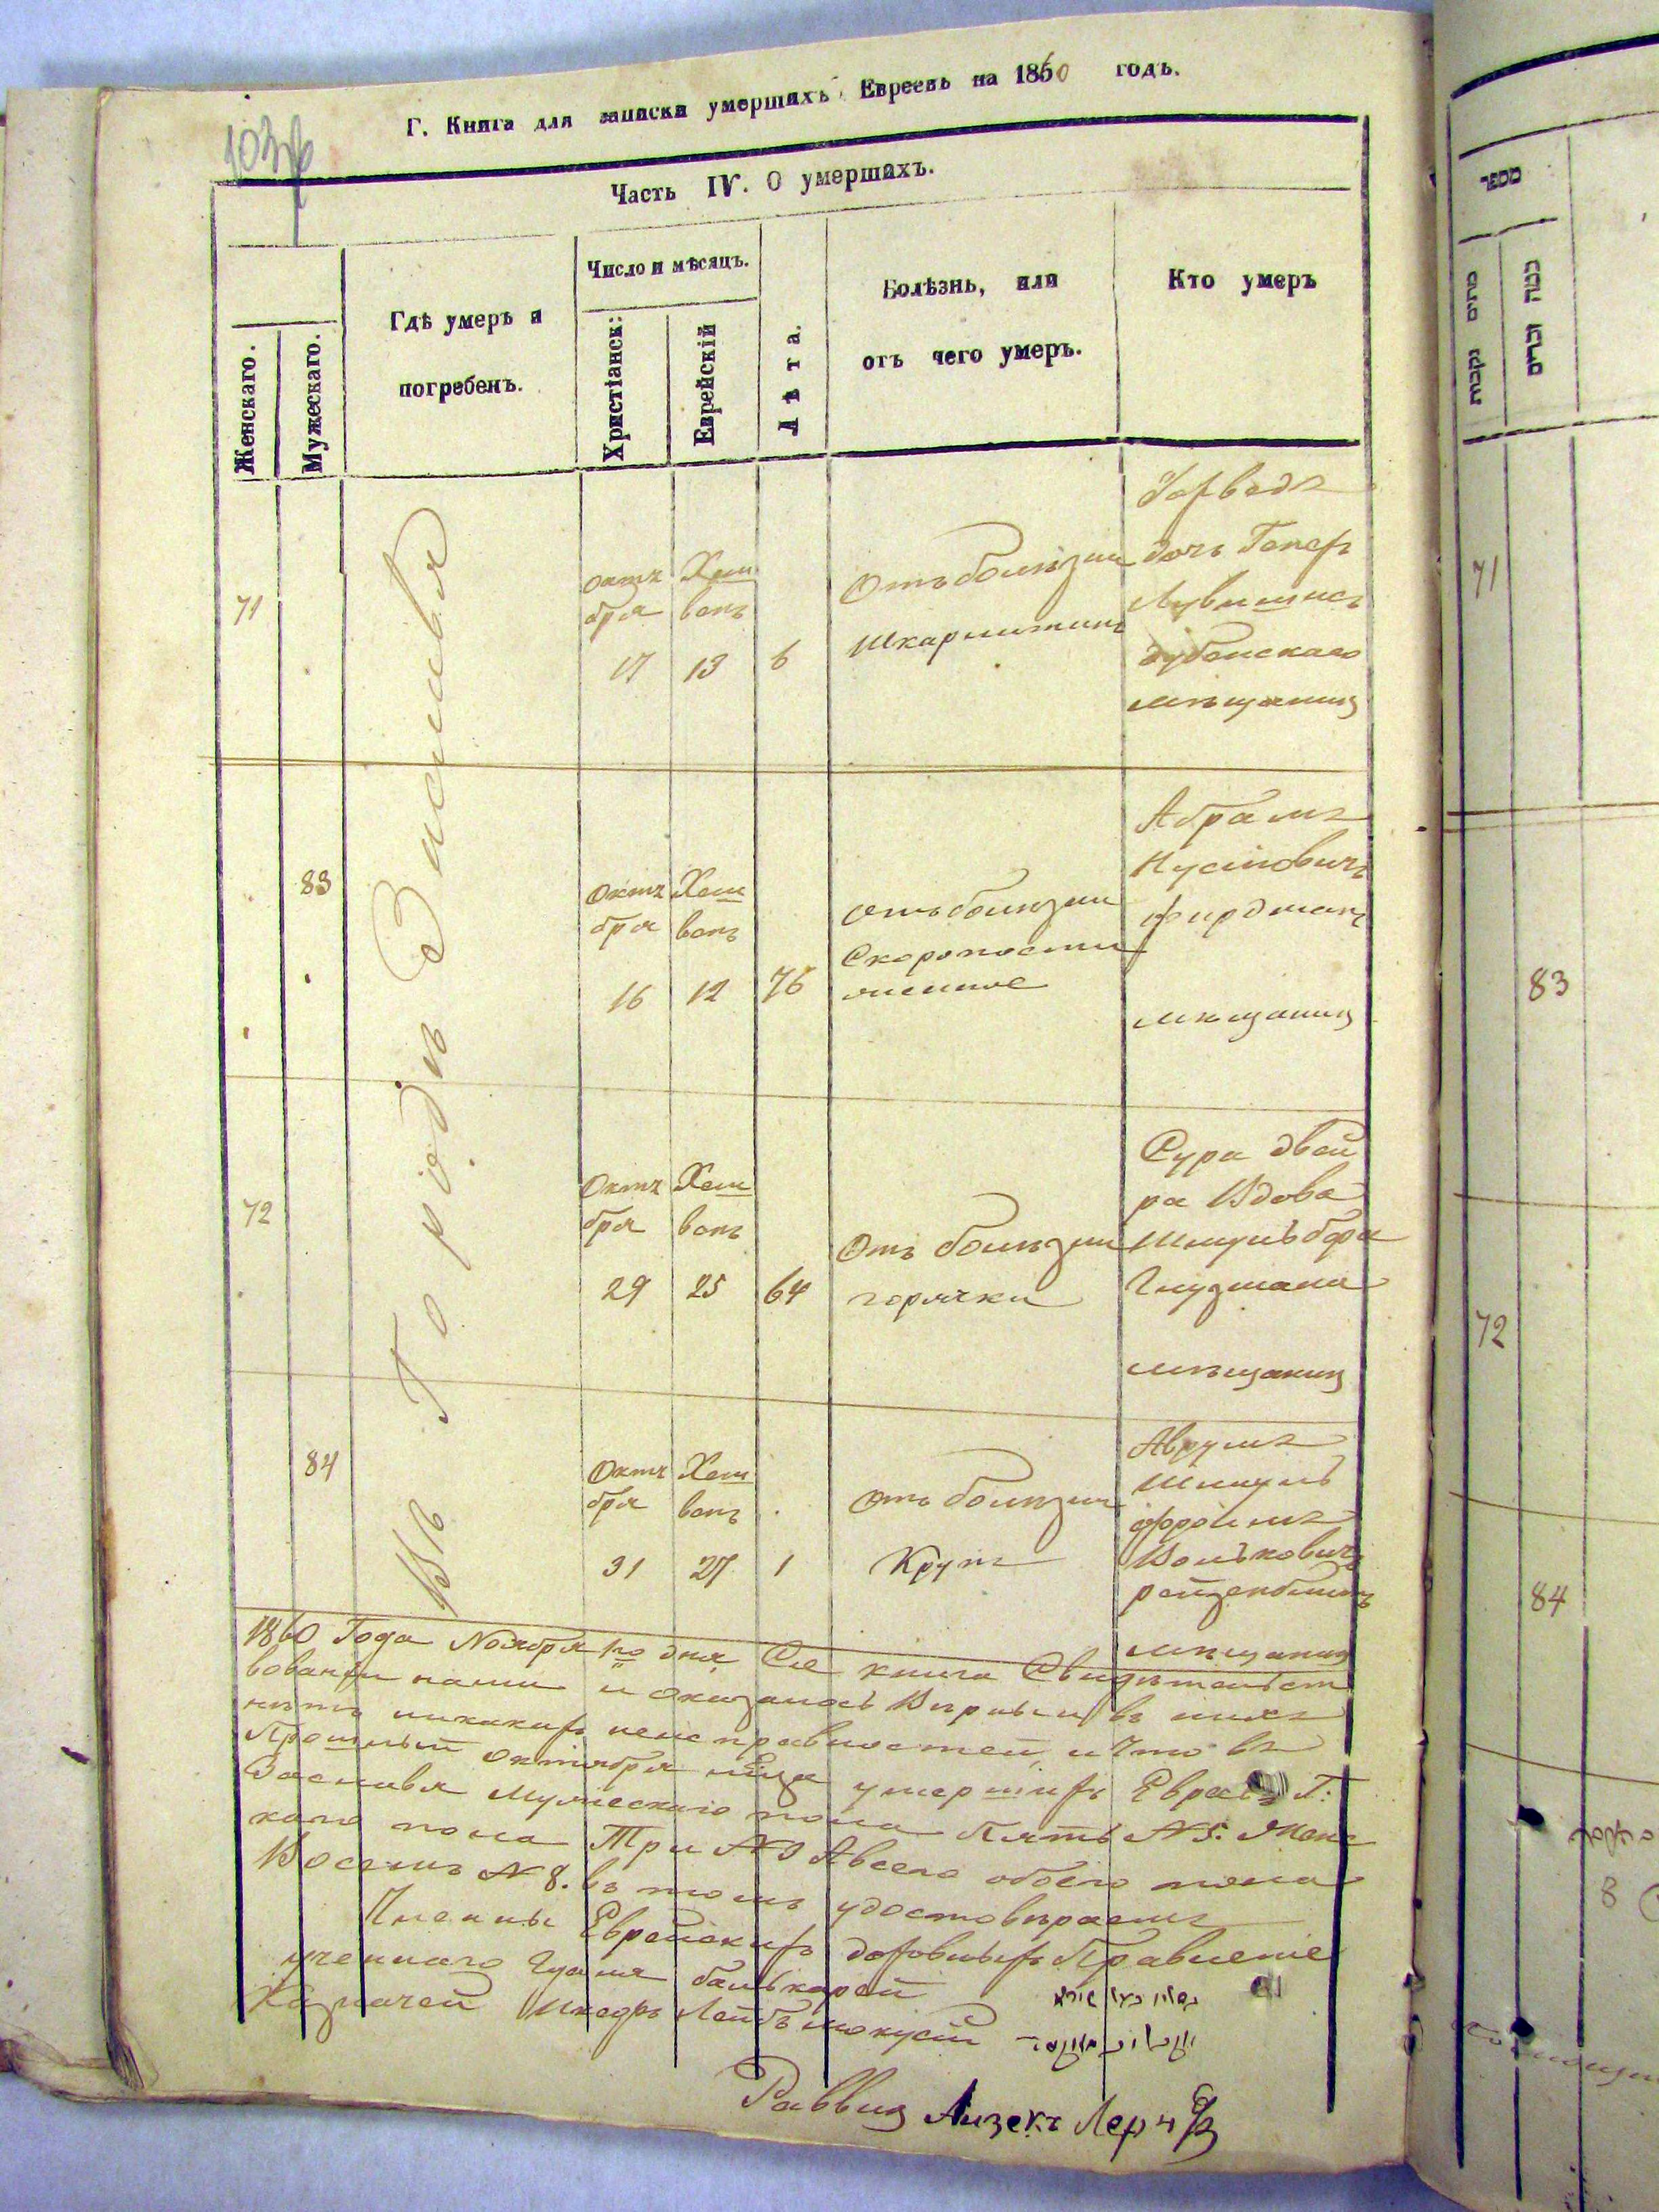 Г. Книга для записки умершихъ Евреевъ на 1860 годъ.
Часть IV. О умершихъ.
Женскаго.
Мужескаго.
Гдѣ умеръ и
погребенъ.
Число и мѣсяцъ.
Христіанск:
Еврейскій
Лѣта.
Болѣзнь, или
отъ чего умеръ.
Кто умеръ
Въ Городѣ Заславлѣ
71
Октя
бря
17
Хеш
ванъ
13
6
Отъ болѣзни
шкарлатинъ
дочь
дубенскаго
мѣщанинъ
83
Октя
бря
16
Хеш
ванъ
12
76
отъ болѣзни
Скоропости
жиное
Абрамъ
Нусіновичъ
Фирдманъ
мѣщанинъ
72
Октя
бря
29
Хеш
ванъ
25
64
Отъ болѣзни
горячки
Сура двей
ра Вдова
Глузмана
мѣщанинъ
84
Октя
бря
31
Хеш
ванъ
27
1
отъ болѣзни
Крупъ
Аврумъ
Шмуль
Фроимъ
Вольковичъ
мѣщанинъ
1860 Года Ноября 1го дня Сіе книга Свидѣтельст
вованы нами и оказалась Вѣрны и въ нихъ
нѣтъ никакихъ неисправностей, и что въ
Прошлый Октября мѣца умершихъ Евреевъ Г:
Заславля Мужескаго пола Пять №5. Женс
каго пола Три №3 А всего обоего пола
Восемь №8. въ томъ удостовѣряемъ
Члены Еврейскихъ духовныхъ Правленіе
ученнаго
Казначей Лейбъ
Раввинъ Айзекъ Лернеръ
ספר
71
83
72
84
8